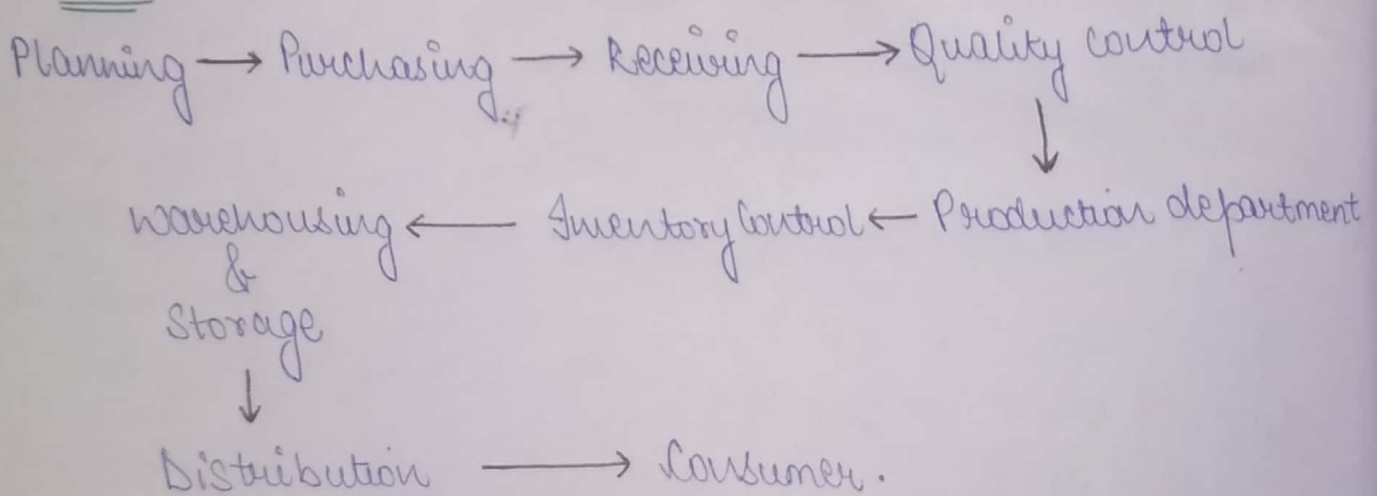 Planning → Purchasing → Receiving → Quality control
↓
Warehousing ← Inventory Control ← Production department
&
Storage
↓
Distribution → Consumer.